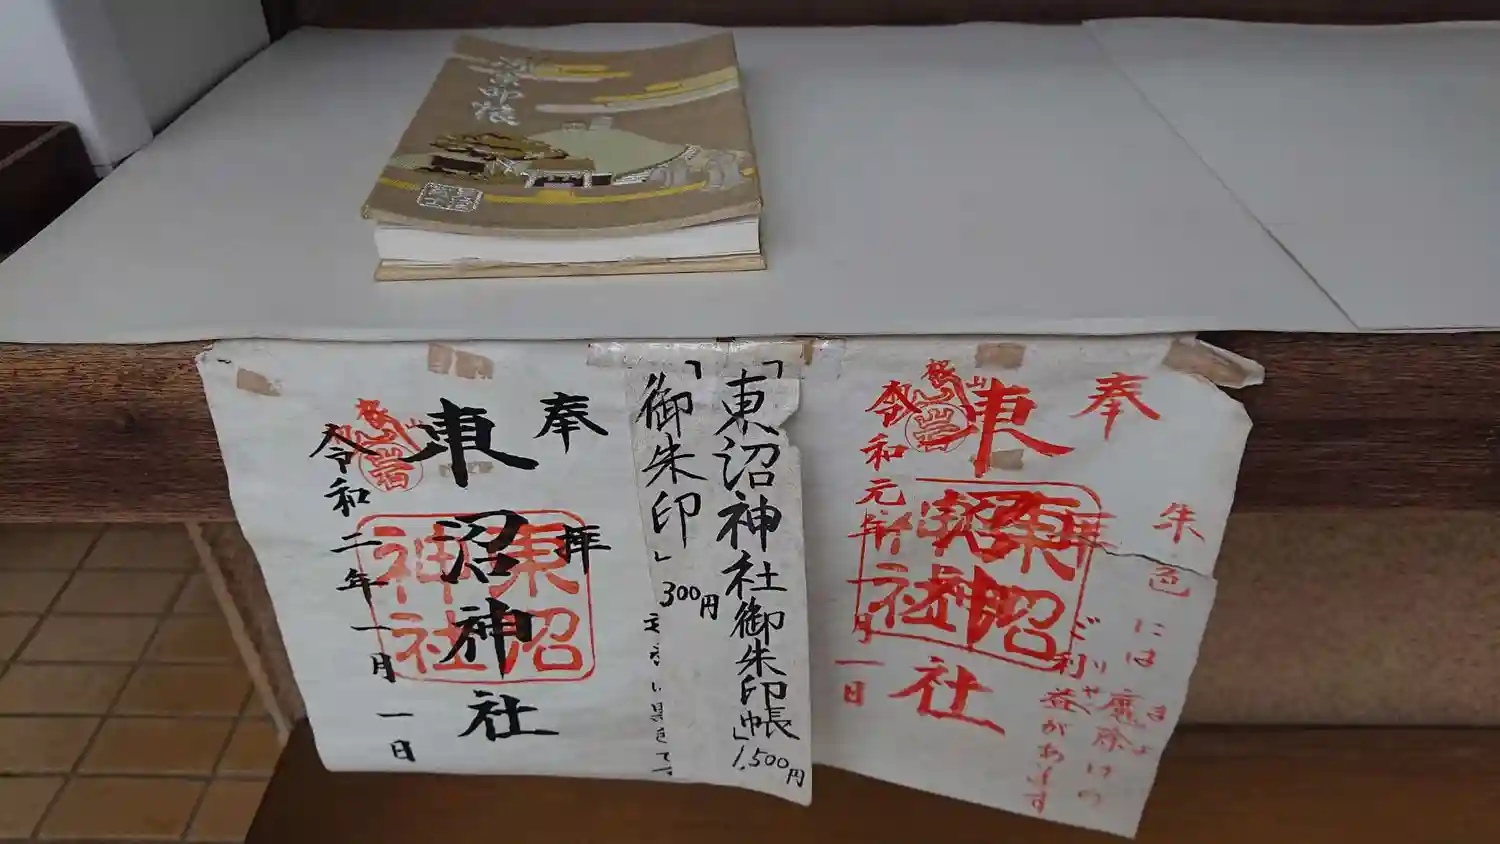 御朱印帳
奉拝
東沼神社
東沼
神社
令和二年一月一日
「東沼神社御朱印帳」1,500円
「御朱印」300円
奉拝
東沼神社
東沼
神社
令和元年一月一日
朱色には魔除けの
ご利益があります